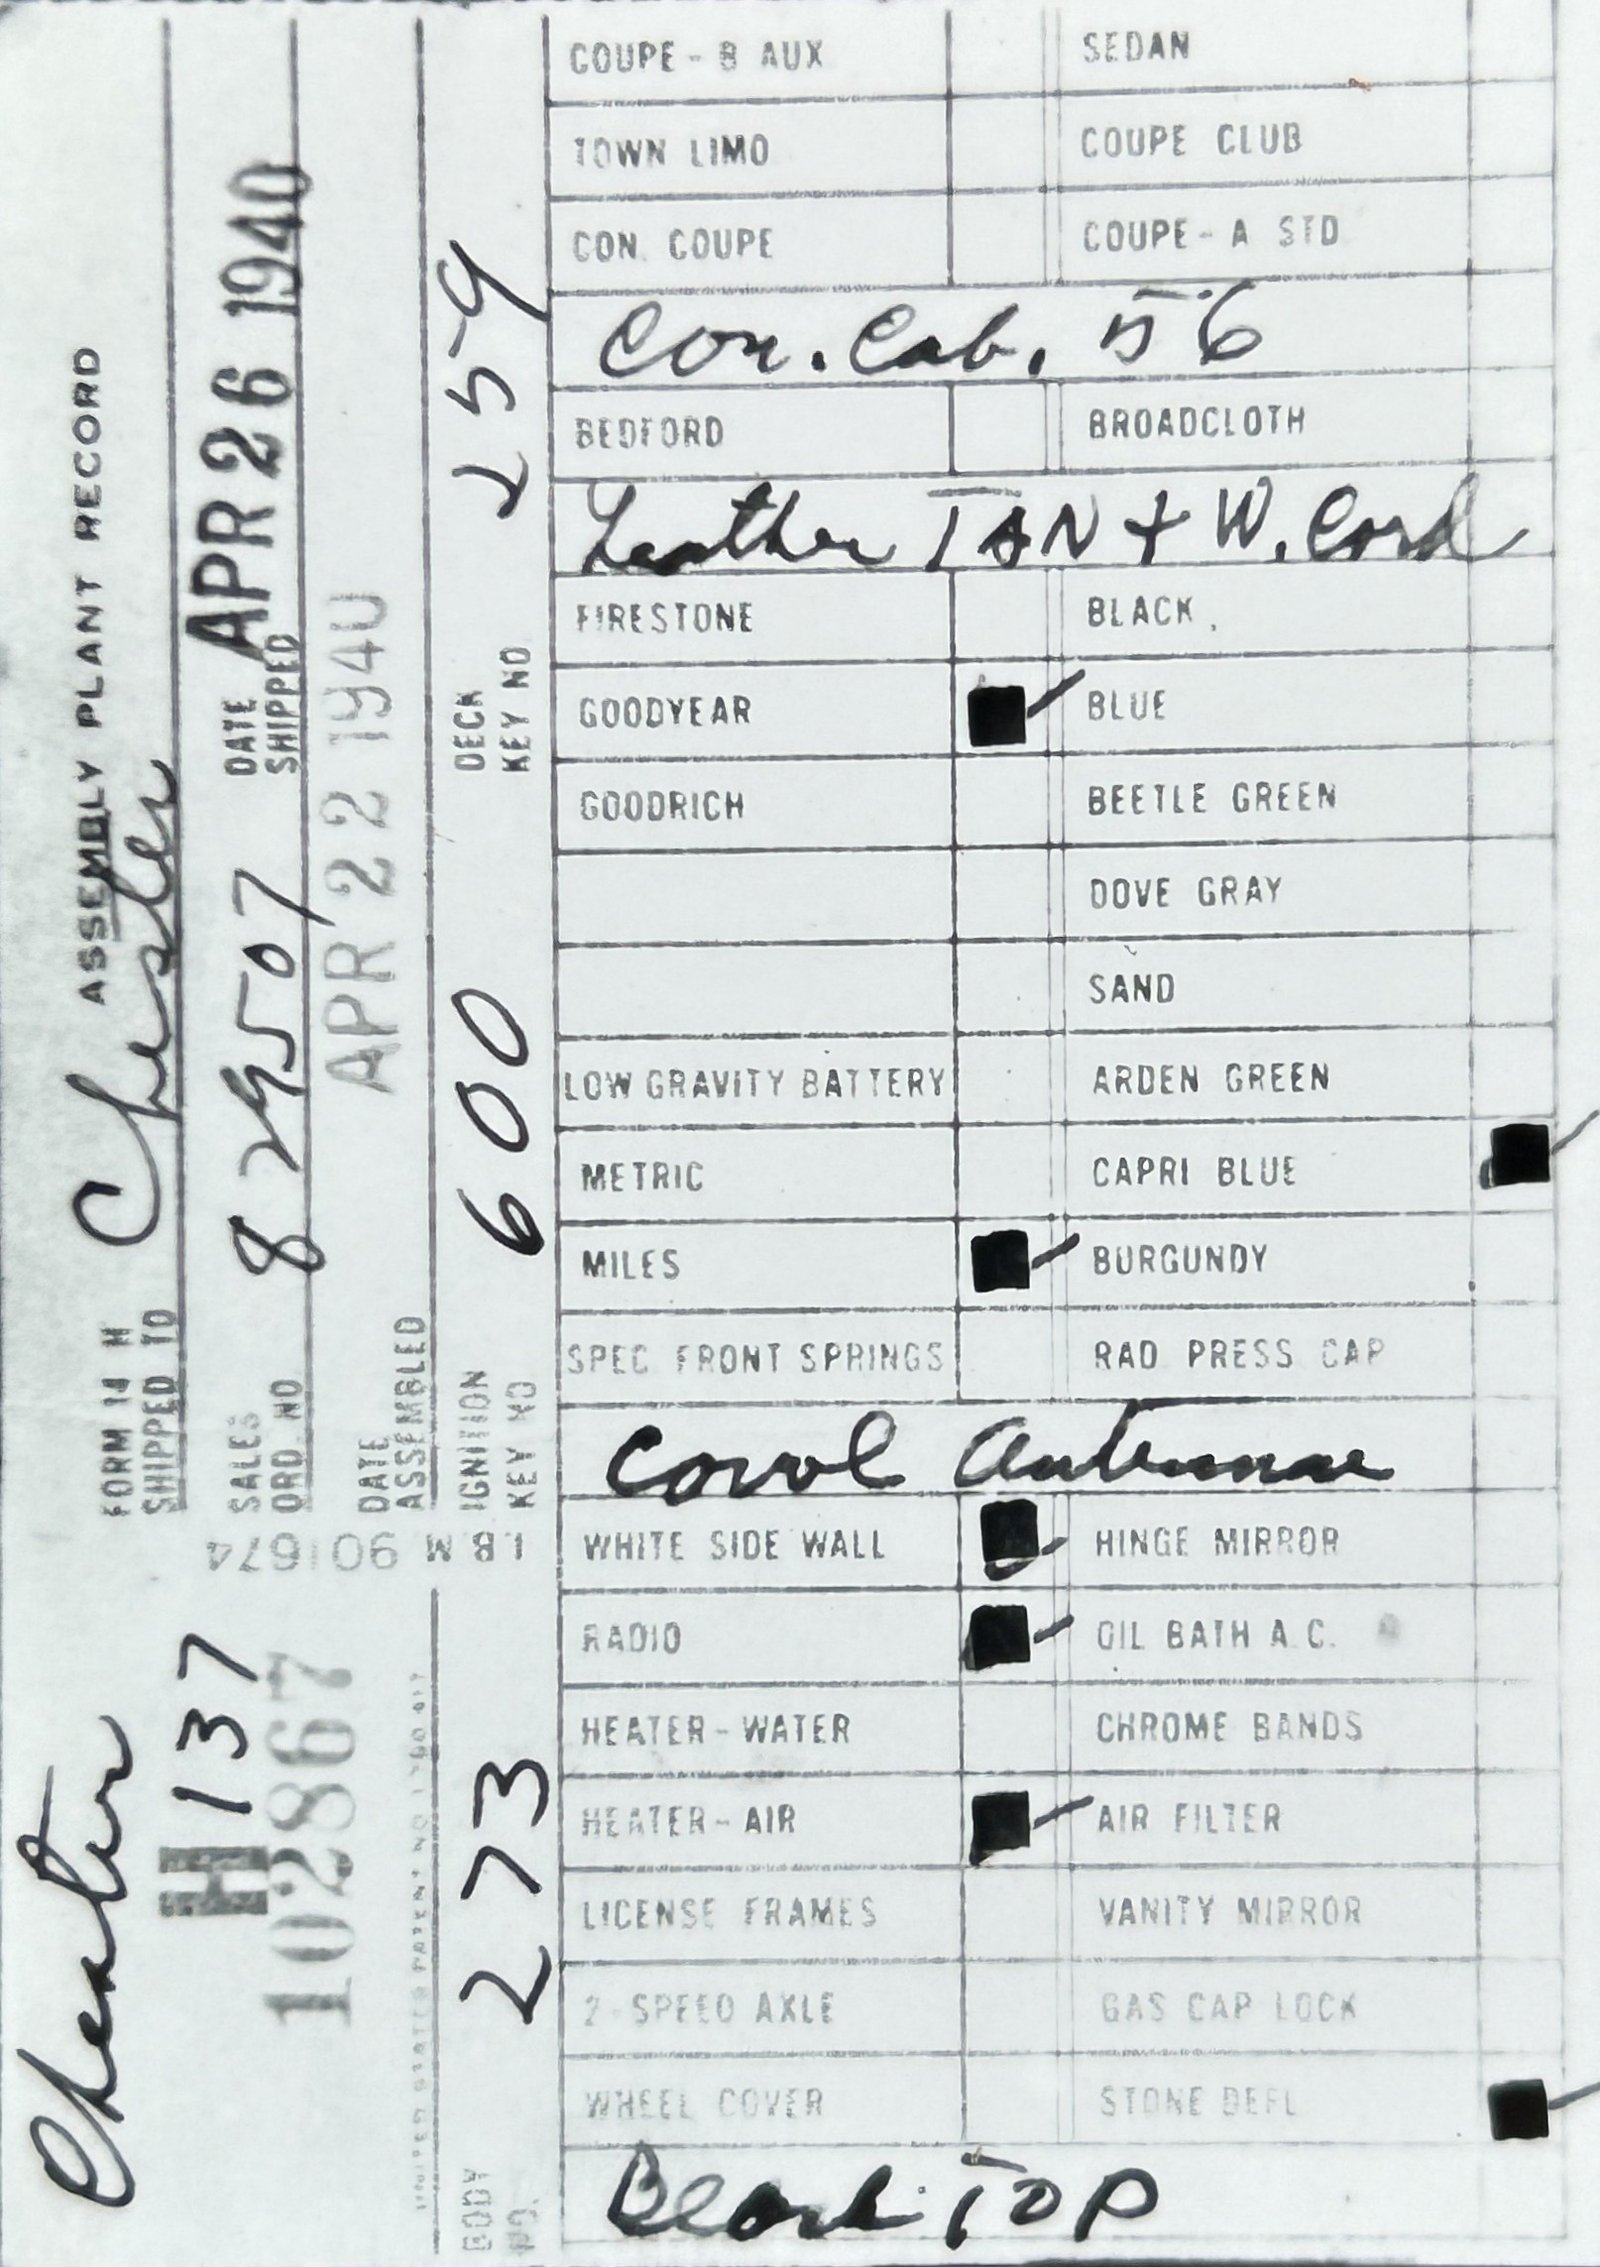 FORM 14 H ASSEMBLY PLANT RECORD
SHIPPED TO Chester
SALES ORD. NO 829507
DATE SHIPPED APR 26 1940
DATE ASSEMBLED APR 22 1940
IGNITION KEY NO 600
DECK KEY NO 259
Chester
H 137
102867
IBM 901674
BODY NO. 273
COUPE - B AUX SEDAN
TOWN LIMO COUPE CLUB
CON. COUPE COUPE - A STD
Con. Cab. 56
BEDFORD BROADCLOTH
Leather TAN + W. Cord
FIRESTONE BLACK
GOODYEAR BLUE
GOODRICH BEETLE GREEN
DOVE GRAY
SAND
LOW GRAVITY BATTERY ARDEN GREEN
METRIC CAPRI BLUE
MILES BURGUNDY
SPEC FRONT SPRINGS RAD PRESS CAP
Cowl Antennae
WHITE SIDE WALL HINGE MIRROR
RADIO OIL BATH A.C.
HEATER - WATER CHROME BANDS
HEATER - AIR AIR FILTER
LICENSE FRAMES VANITY MIRROR
2-SPEED AXLE GAS CAP LOCK
WHEEL COVER STONE DEFL
Black TOP